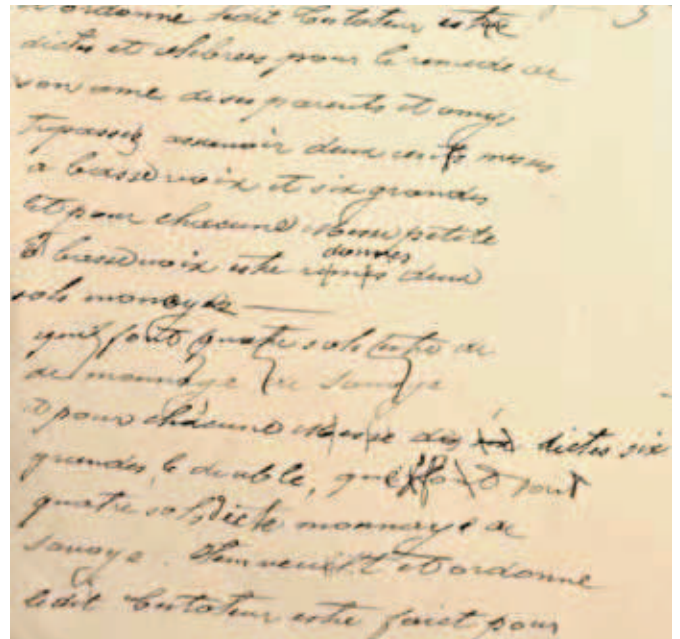 et ordonne ledit testateur estre
dictes et celebrees pour le remede de
son ame de ses parents et amys
trepasses assavoir deux cents messes
a basse voix et six grandes
et pour chacune Messe petite
donnes
a basse voix estre deux
sols monoye
quel font quatre sols
de monnoye de Savoye
et pour chacune Messe des dictes six
grandes, le double, que font
quatre sols dicte monnoye de
savoye. Item veult et ordonne
ledit testateur estre faict pour